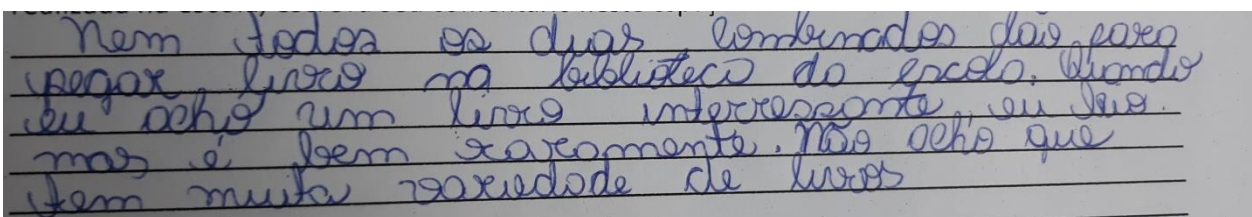 Nem todos os dias combinados dão para
pegar livro na biblioteca da escola. Quando
eu acho um livro interressante, eu leio.
mas é bem raramente. Não acho que
tem muita variedade de livros